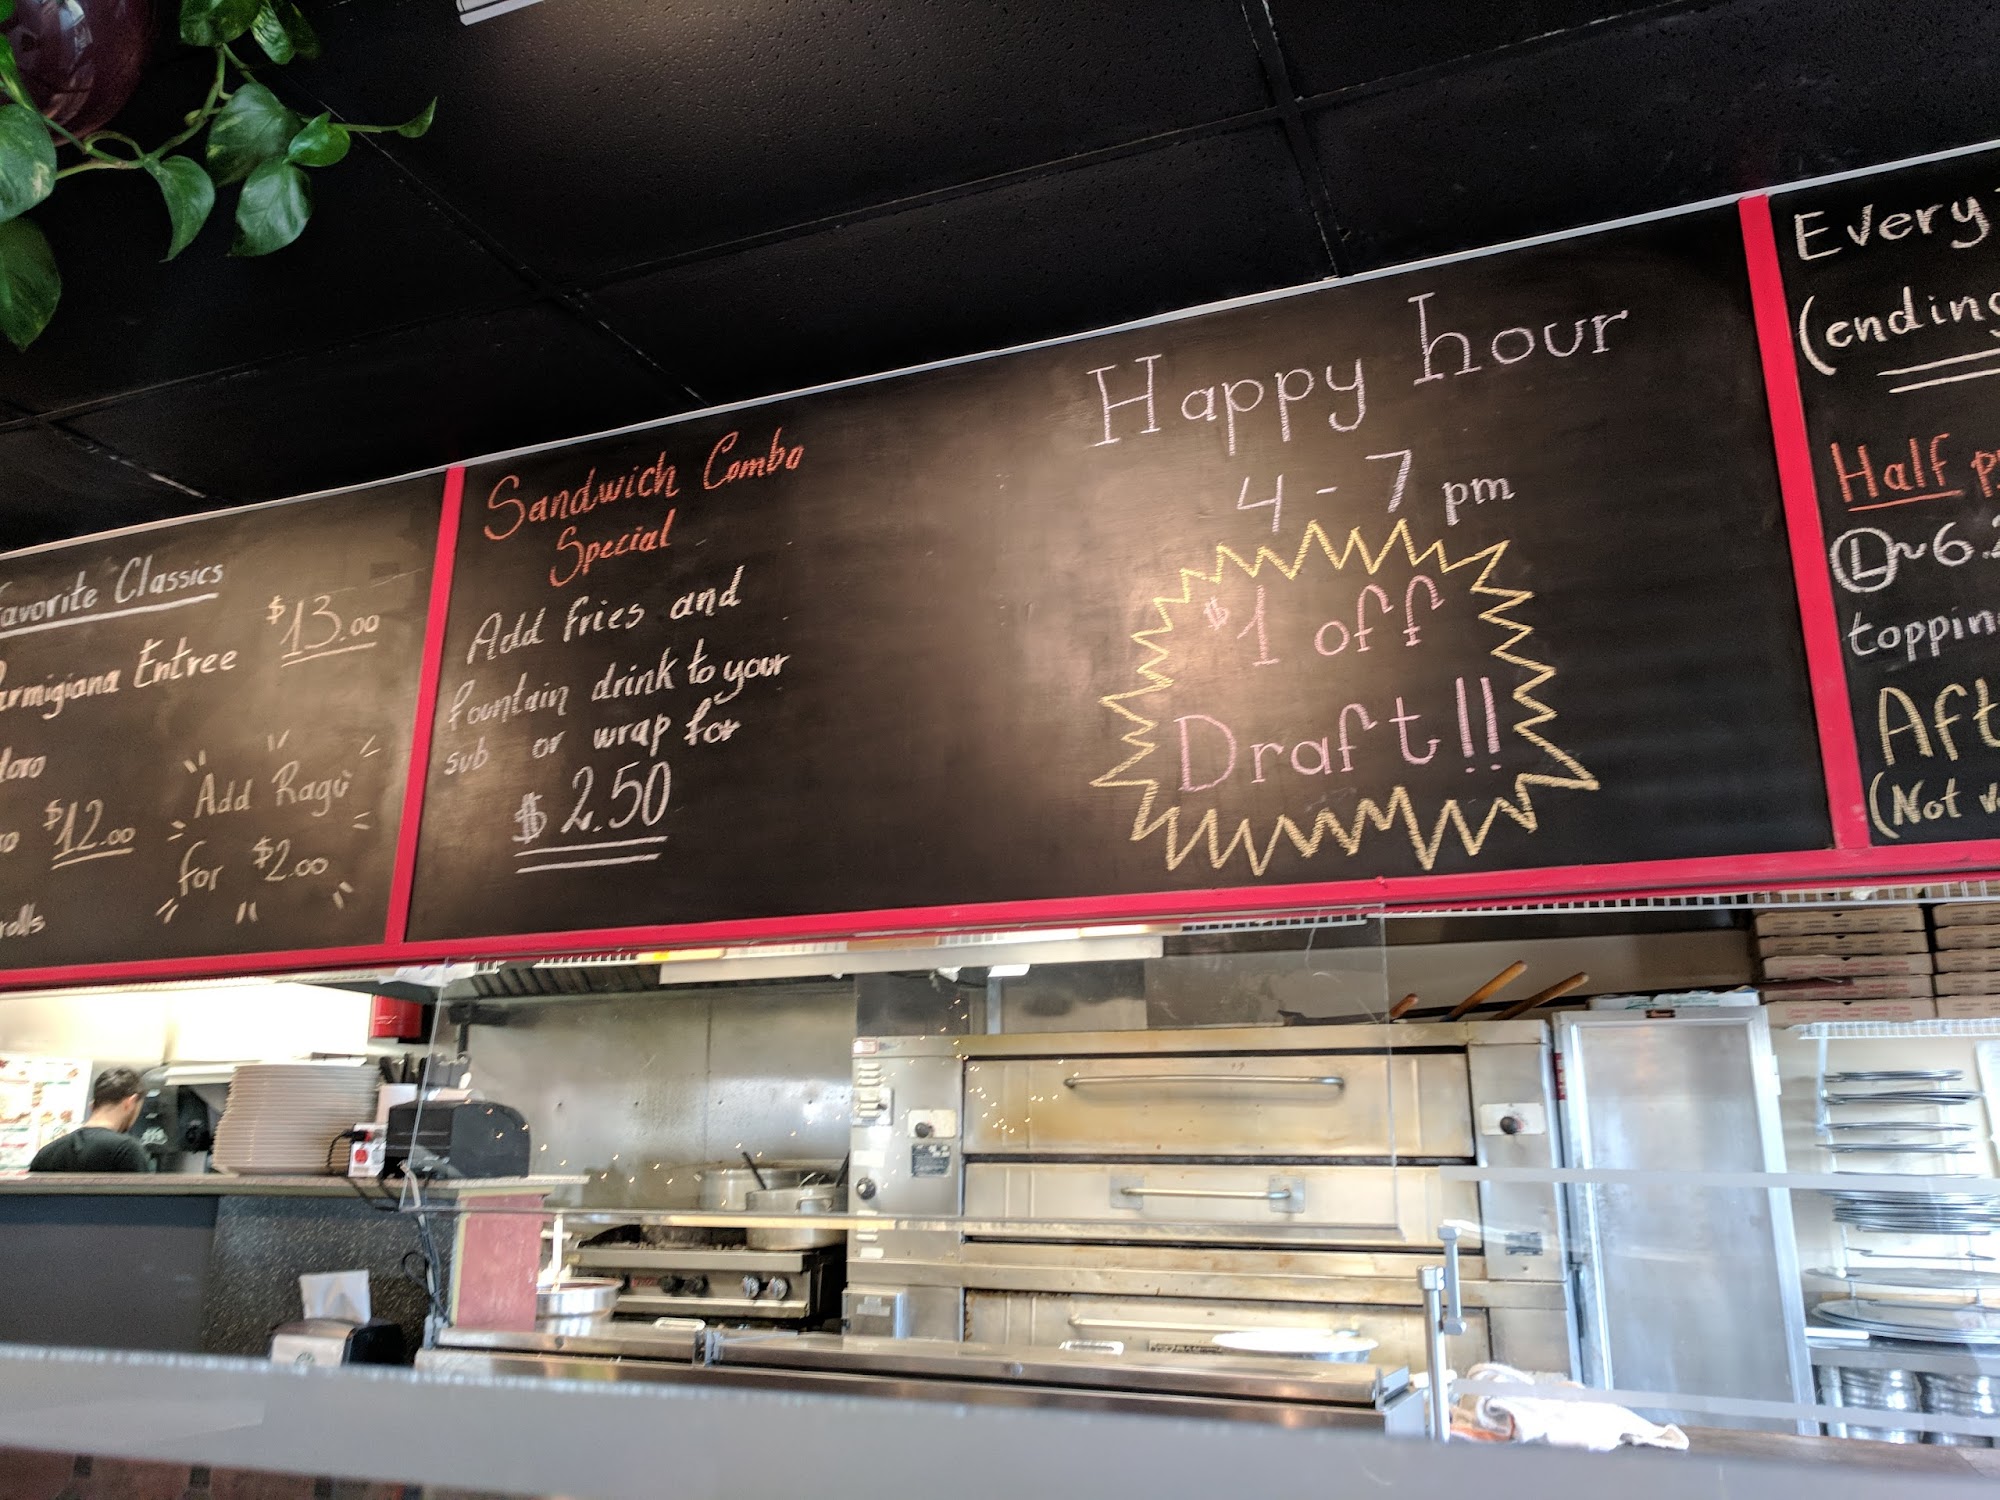 Favorite Classics
Parmigiana Entree $13.00
$12.00
rolls
Add Ragù
for $2.00
Sandwich Combo
Special
Add fries and
fountain drink to your
sub or wrap for
$2.50
Happy hour
4 - 7 pm
$1 off
Draft!!
Every
(ending
Half
L~6.2
topping
Aft
(Not v